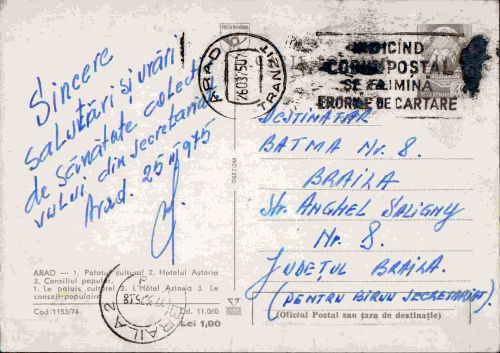 Sincere
salutări și urări
de sănătate colecti
vului din secretariat
Arad. 25 III 975
ARAD — 1. Palatul cultural 2. Hotelul Astoria
3. Consiliul popular.
1. Le palais culturel 2. L'Hôtel Astoria 3. Le
conseil populaire
Cod 1153/74
Cd. 11.060
Lei 1,00
DSETCM
POSTA ROMANA
ARAD
26.03.75
TRANZIT
INDICÎND
CODUL POȘTAL
SE ELIMINĂ
ERORILE DE CARTARE
BRAILA 2
DESTINATAR
BATMA Nr. 8.
BRAILA
Str. ANGHEL SALIGNY
Nr. 8.
JUDEȚUL BRAILA.
(PENTRU BIROU SECRETARIAT)
(Oficiul Postal sau țara de destinație)